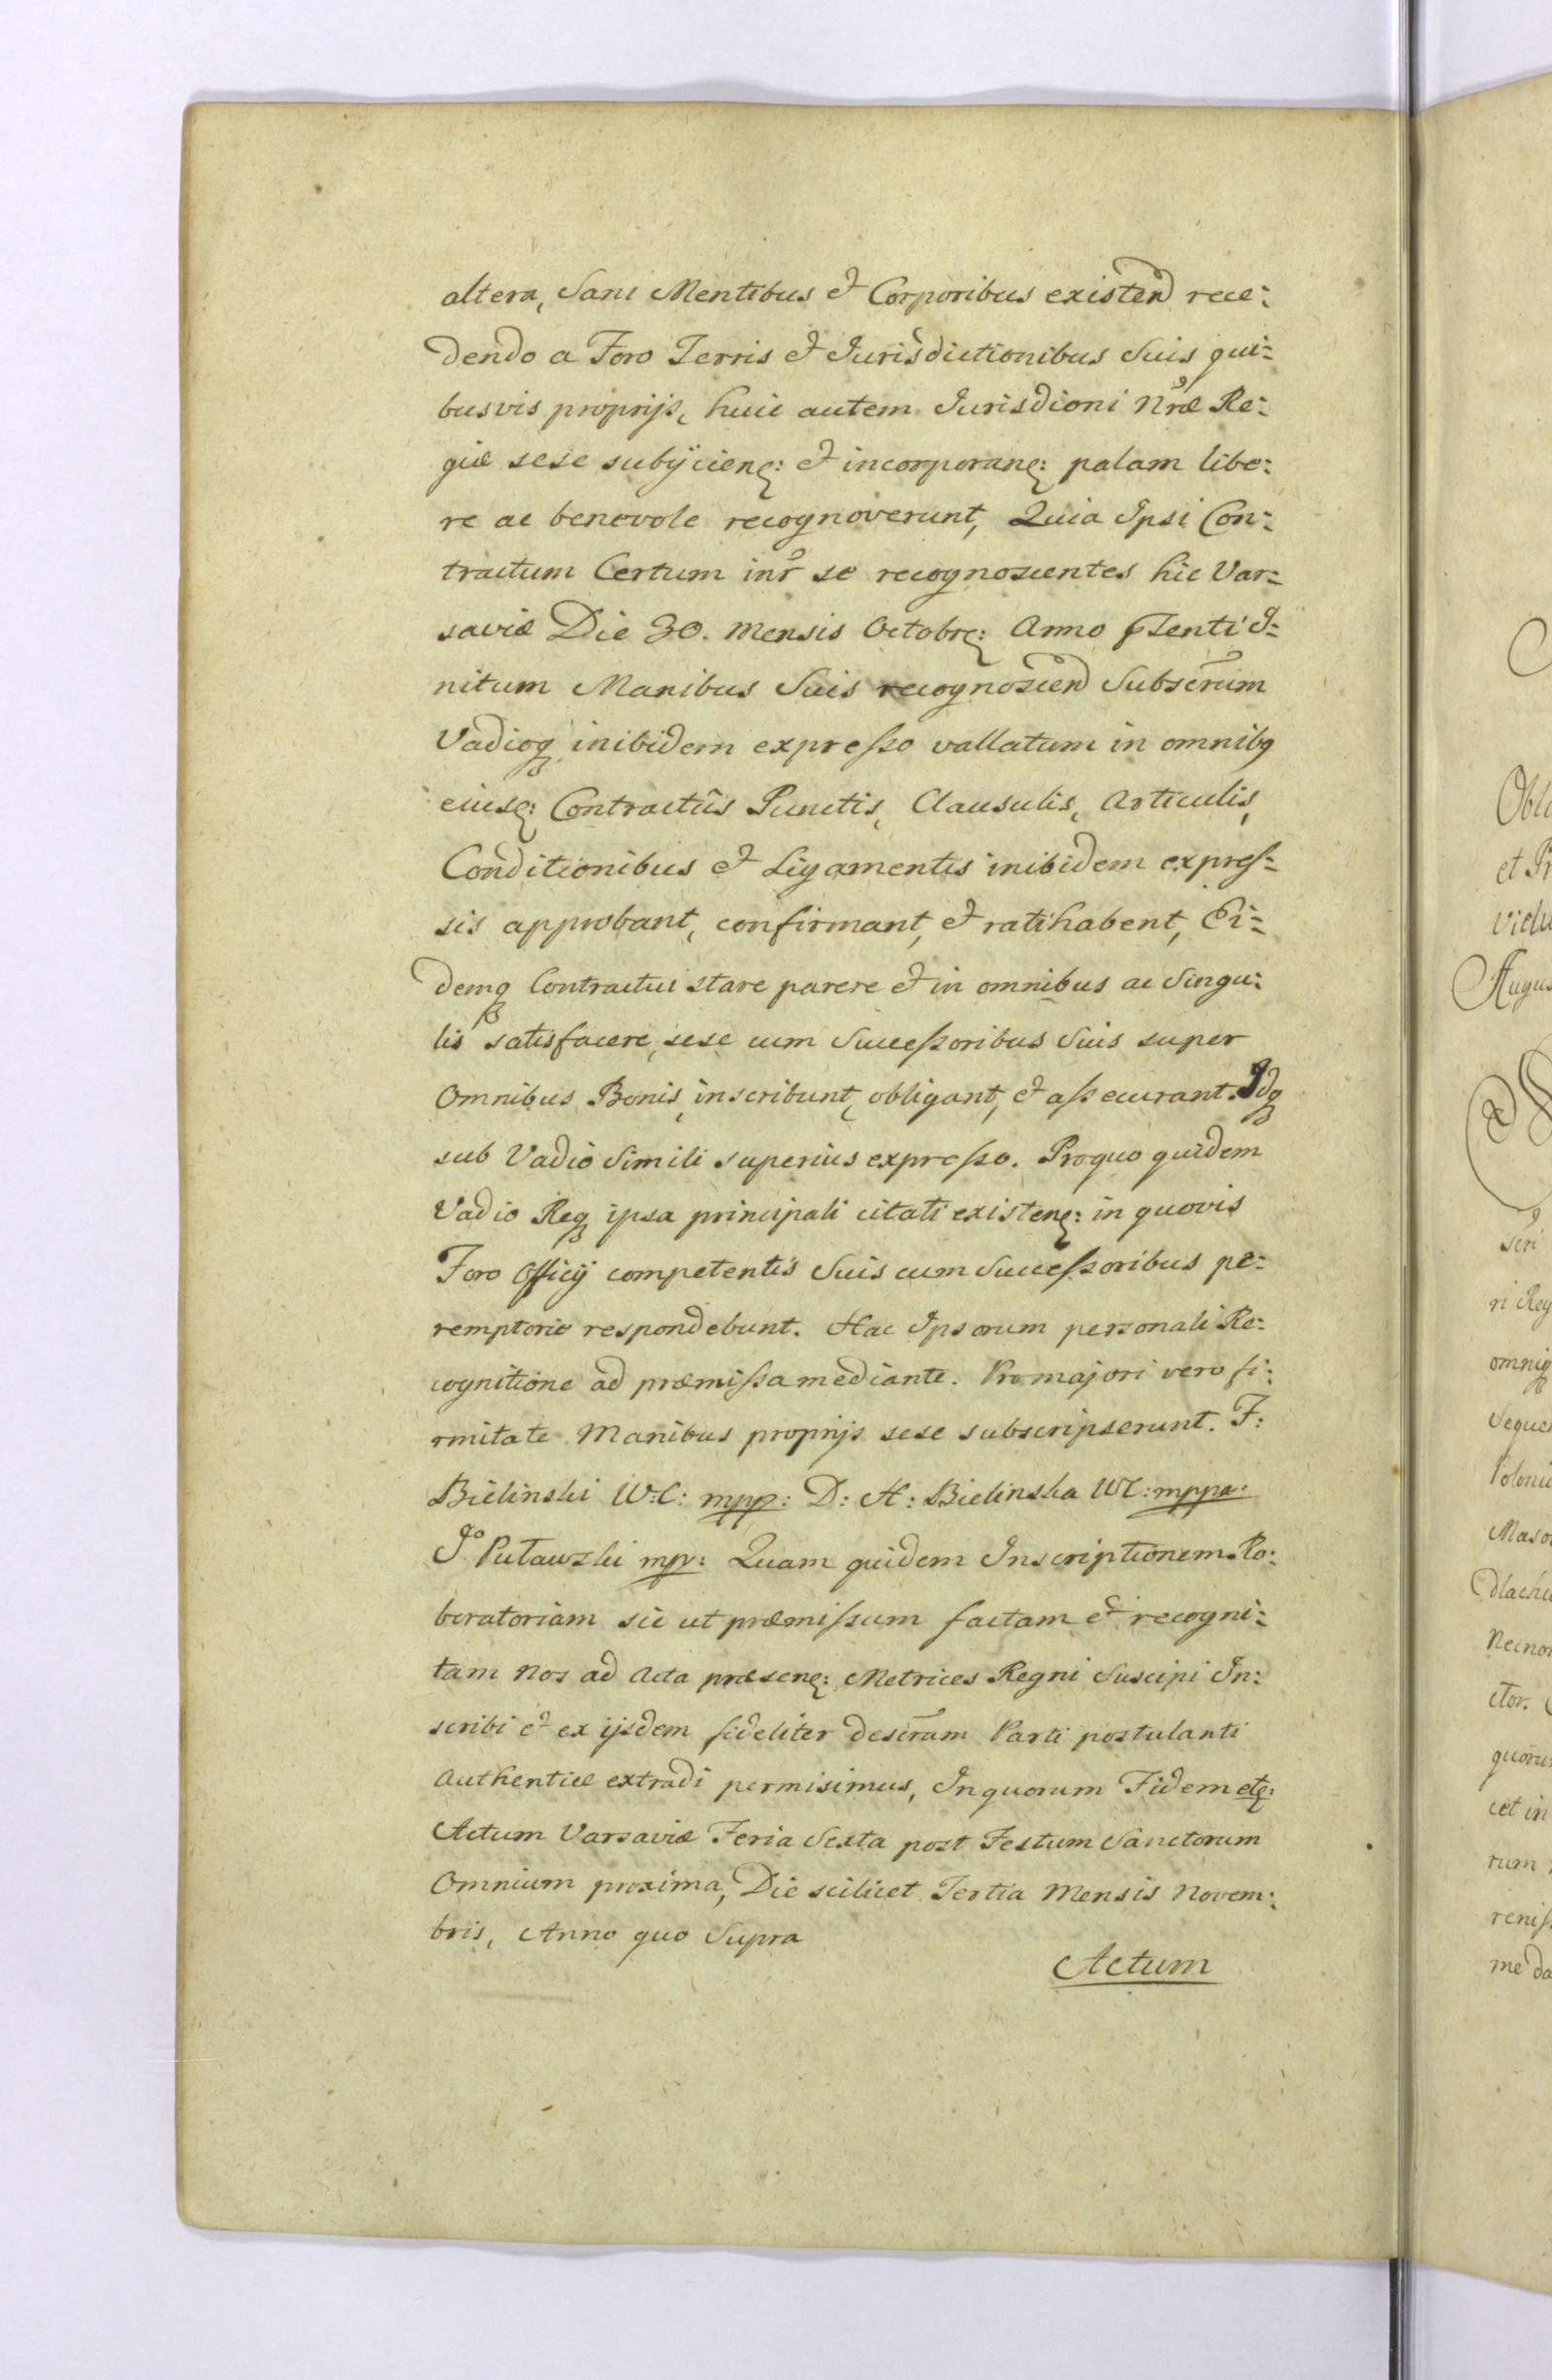 altera, Sani Mentibus et Corporibus existend rece:
dendo a Foro Terris et Jurisdictionibus Suis qui:
busvis proprijs, huic autem Jurisdioni Nræ Re:
giæ sese subijcienȩ: et incorporanȩ: palam libe:
re ac benevole recognoverunt, Quia Ipsi Con:
tractum Certum intr se recognoscentes hic Var:
saviæ Die 30. Mensis Octobrȩ: Anno pſenti J:
nitum Manibus Suis recognoscend Subscrum
Vadioq inibidem expreſso vallatum in omnibq
eiusȩ: Contractûs Punctis, Clausulis, Articulis,
Conditionibus et Ligamentis inibidem expreſ:
sis approbant, confirmant, et ratihabent, Ei:
demq Contractui stare parere et in omnibus ac Singu:
lis satisfacere, sese cum Succeſsoribus Suis super
Omnibus Bonis, inscribunt, obligant, et aſsecurant. Idq
sub Vadio Simili superius expreſso. Proquo quidem
Vadio Req ipsa principali citati existenȩ: in quovis
Foro Officij competentis Suis cum Succeſsoribus pe:
remptorie respondebunt. Hac Ipsorum personali Re:
cognitione ad præmiſsa mediante. Pro majori vero fi:
rmitate Manibus proprijs sese subscripserunt. F:
Bielinski W:C: mpp: D: H: Bielinska WC: mppa:
Jº Puławski mp: Quam quidem Inscriptionem Ro:
boratoriam sic ut præmiſsum factam et recogni:
tam Nos ad Acta præsenȩ: Metrices Regni Suscipi In:
scribi et ex ijsdem fideliter descrum Parti postulanti
Authenticæ extradi permisimus, In quorum Fidem etȩ:
Actum Varsaviæ Feria Sexta post Festum Sanctorum
Omnium proxima, Die scilicet Tertia Mensis Novem:
bris, Anno quo Supra
Actum